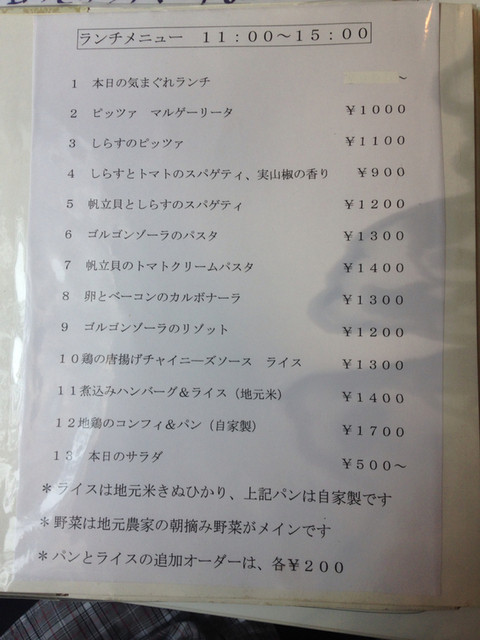 ランチメニュー　１１：００～１５：００
１　本日の気まぐれランチ　～
２　ピッツァ　マルゲーリータ　￥１０００
３　しらすのピッツァ　￥１１００
４　しらすとトマトのスパゲティ、実山椒の香り　￥９００
５　帆立貝としらすのスパゲティ　￥１２００
６　ゴルゴンゾーラのパスタ　￥１３００
７　帆立貝のトマトクリームパスタ　￥１４００
８　卵とベーコンのカルボナーラ　￥１３００
９　ゴルゴンゾーラのリゾット　￥１２００
１０鶏の唐揚げチャイニーズソース　ライス　￥１３００
１１煮込みハンバーグ＆ライス（地元米）　￥１４００
１２地鶏のコンフィ＆パン（自家製）　￥１７００
１３　本日のサラダ　￥５００～
＊ライスは地元米きぬひかり、上記パンは自家製です
＊野菜は地元農家の朝摘み野菜がメインです
＊パンとライスの追加オーダーは、各￥２００